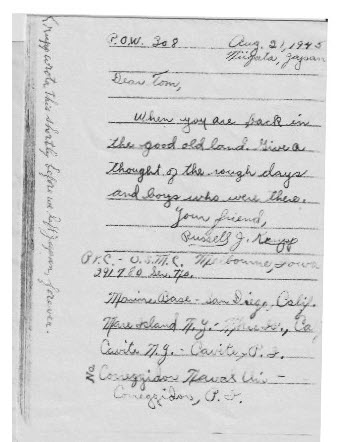 P.O.W. 308
Aug. 21, 1945
Niigata, Japan
Dear Tom,
When you are back in
the good old land. Give a
thought of the rough days
and boys who were there.
Your friend,
Russell J.
P.F.C. - U.S.M.C. Melbourne, Iowa
Ser. No.
Marine Base - San Diego, Calif.
Mare Island N.Y. - Ca.
Cavite N.Y. - Cavite, P.I.
No.
Corregidor
Corregidor, P.I.
wrote this shortly before we left Japan forever.